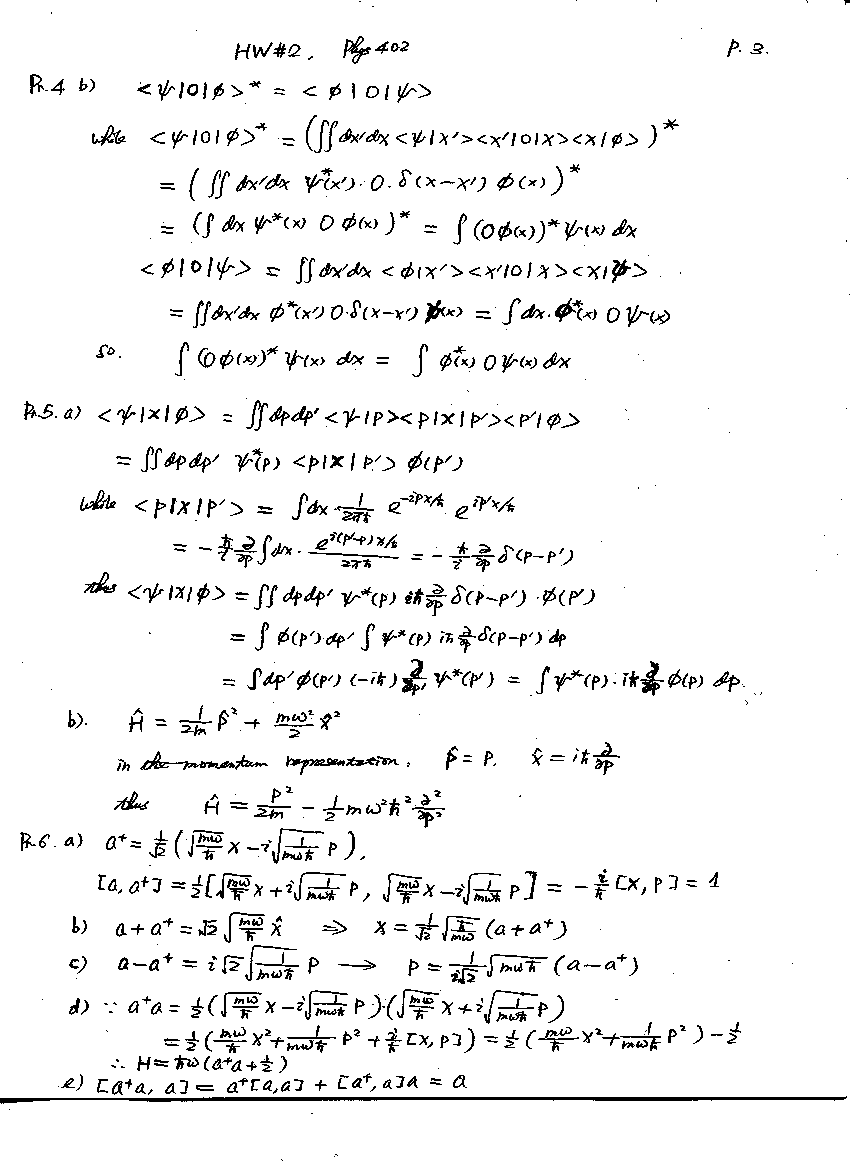 HW#2, Phys 402 P. 3.
Pr.4 b) <ψ|O|φ>* = <φ|O|ψ>
while <ψ|O|φ>* = (∬dx'dx <ψ|x'><x'|O|x><x|φ>)*
= (∬ dx'dx ψ*(x')·O·δ(x-x') φ(x))*
= (∫dx ψ*(x) O φ(x))* = ∫(Oφ(x))* ψ(x) dx
<φ|O|ψ> = ∬dx'dx <φ|x'><x'|O|x><x|ψ>
= ∬dx'dx φ*(x') O·δ(x-x') ψ(x) = ∫dx·φ*(x) Oψ(x)
so. ∫(Oφ(x))* ψ(x) dx = ∫ φ*(x) Oψ(x) dx
Pr.5. a) <ψ|x|φ> = ∬dpdp' <ψ|p><p|x|p'><p'|φ>
= ∬dpdp' ψ*(p) <p|x|p'> φ(p')
while <p|x|p'> = ∫dx · x/2πħ e^{-ipx/ħ} e^{ip'x/ħ}
= -ħ/i ∂/∂p ∫dx · e^{i(p'-p)x/ħ}/2πħ = -ħ/i ∂/∂p δ(p-p')
thus <ψ|x|φ> = ∬ dpdp' ψ*(p) iħ ∂/∂p δ(p-p')·φ(p')
= ∫ φ(p')dp' ∫ ψ*(p) iħ ∂/∂p δ(p-p') dp
= ∫dp' φ(p') (-iħ) ∂/∂p' ψ*(p') = ∫ψ*(p)·iħ ∂/∂p φ(p) dp.
b). Ĥ = 1/2m p̂² + mω²/2 x̂²
in the momentum representation, p̂ = p, x̂ = iħ ∂/∂p
thus Ĥ = p²/2m - 1/2 mω²ħ² ∂²/∂p²
Pr.6. a) a⁺ = 1/√2 (√(mω/ħ) x - i√(1/mωħ) p),
[a, a⁺] = 1/2[√(mω/ħ) x + i√(1/mωħ) p, √(mω/ħ) x - i√(1/mωħ) p] = -i/ħ [x, p] = 1
b) a + a⁺ = √2 √(mω/ħ) x̂ ⇒ x = 1/√2 √(ħ/mω) (a + a⁺)
c) a - a⁺ = i√2 √(1/mωħ) p → p = 1/i√2 √(mωħ) (a - a⁺)
d) ∵ a⁺a = 1/2 (√(mω/ħ) x - i√(1/mωħ) p)·(√(mω/ħ) x + i√(1/mωħ) p)
= 1/2 (mω/ħ x² + 1/mωħ p² + i/ħ [x, p]) = 1/2 (mω/ħ x² + 1/mωħ p²) - 1/2
∴ H = ħω(a⁺a + 1/2)
e) [a⁺a, a] = a⁺[a, a] + [a⁺, a]a = a